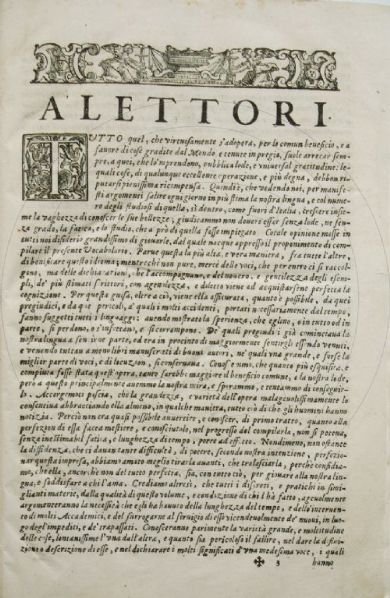 A LETTORI.
TUTTO quel, che virtuosamente s'adopera, per lo comun beneficio, e a
favore di cose gradite dal Mondo e tenute in pregio, suole arrecar sem-
pre, a quei, che lo 'mprendono, pubblica lode, e universal gratitudine: le
quali cose, di qualunque eccellente operazione, e più degna, debbon ri-
putarsi primissima ricompensa. Quindi è, che vedendo noi, per manife-
sti argomenti salire ogni giorno in più stima la nostra lingua, e col nume-
ro degli studiosi di quella, sì dentro, come fuori d'Italia, crescere insie-
me la vaghezza di conoscer le sue bellezze, giudicammo non dovere esser senza lode, ne sen-
za grado, la fatica, e lo studio, che a prò di quella fosse impiegato. Cotale opinione mosse in
tutti noi disiderio grandissimo di giovarle, dal quale nacque appresso il proponimento di com-
pilare il presente Vocabolario. Parve questa la più alta, e vera maniera, fra tutte l'altre,
di beneficare questo idioma; mentre chi non pure, mercè delle voci, che per entro ci si raccol-
gono, ma delle dichiarazioni, che l'accompagnano, e del numero, e gentilezza degli esem-
pli, de' più stimati scrittori, con agevolezza, e diletto viene ad acquistarsene perfetta la
cognizione. Per questa guisa, oltre a ciò, viene ella assicurata, quanto è possibile, da quei
pregiudici, e da que' pericoli, a' quali i molti accidenti, portati necessariamente dal tempo,
fanno suggetti tutti i linguaggi: andando nostrada la scienza, che eglino, o in tutto od in
parte, si perdono, o s'infettano, e si corrompono. De' quali pregiudici già cominciava la
nostra lingua a sentire parte, ed era in procinto di maggiormente sentirgli essendo venuti,
e venendo tuttavia meno i libri manuscritti de' buoni autori, ne' quali una grande, e forse la
miglior parte di voci, e di locuzion, si conservava.
compiuta fosse stata quest'opera, tanto sarebbe maggiore il beneficio comune, e la nostra lode,
però a questo principalmente avemmo la nostra mira, e sperammo, e tentammo di conseguir-
lo. Accorgemmoci poscia, che la grandezza, e varietà dell'opera malagevolissimamente lo
consentiva abbracciando ella almeno, in qualche maniera, tutto ciò di che gli huomini hanno
notizia. Perciò non era quasi possibile avvertire, e conoscere, di primo tratto, quanto alla
perfezion di essa faceva mestiere, e conosciutolo, nel progresso del compilarla, non si poteva,
senza inestimabil fatica, e lunghezza di tempo, porre ad effetto. Nondimeno, non ostante
la diffidenza, che ci davan tante difficultà, di potere, secondo nostra intenzione, perfezio-
nar questa impresa, abbiamo amato meglio tirarla avanti, che tralasciarla, perche confidia-
mo, ch'ella, ancorchè non del tutto perfetta, sia, con tutto ciò, per giovare alla nostra lin-
gua, e soddisfare a chi l'ama. Crediamo altresì, che tutti i discreti, e pratichi in simi-
glianti materie, dalla qualità di questo volume, e condizione di chi l'hà fatto, agevolmente
argomenteranno la necessità che egli hà havuto della lunghezza del tempo, e dello 'nterven-
to di molti Accademici, e del surrogarne al servigio di esso vicendevolmente de' nuovi, in luo-
go degl'impediti, e de' trapassati. Conosceranno parimente la varietà grande, e moltitudine
delle cose, lontanissime l'una dall'altra, e quanto sia pericoloso il fallire, nel dare la difini-
zione o descrizione di esse, e nel dichiarare i molti significati d'una medesima voce, i quali
✠ 3 hanno